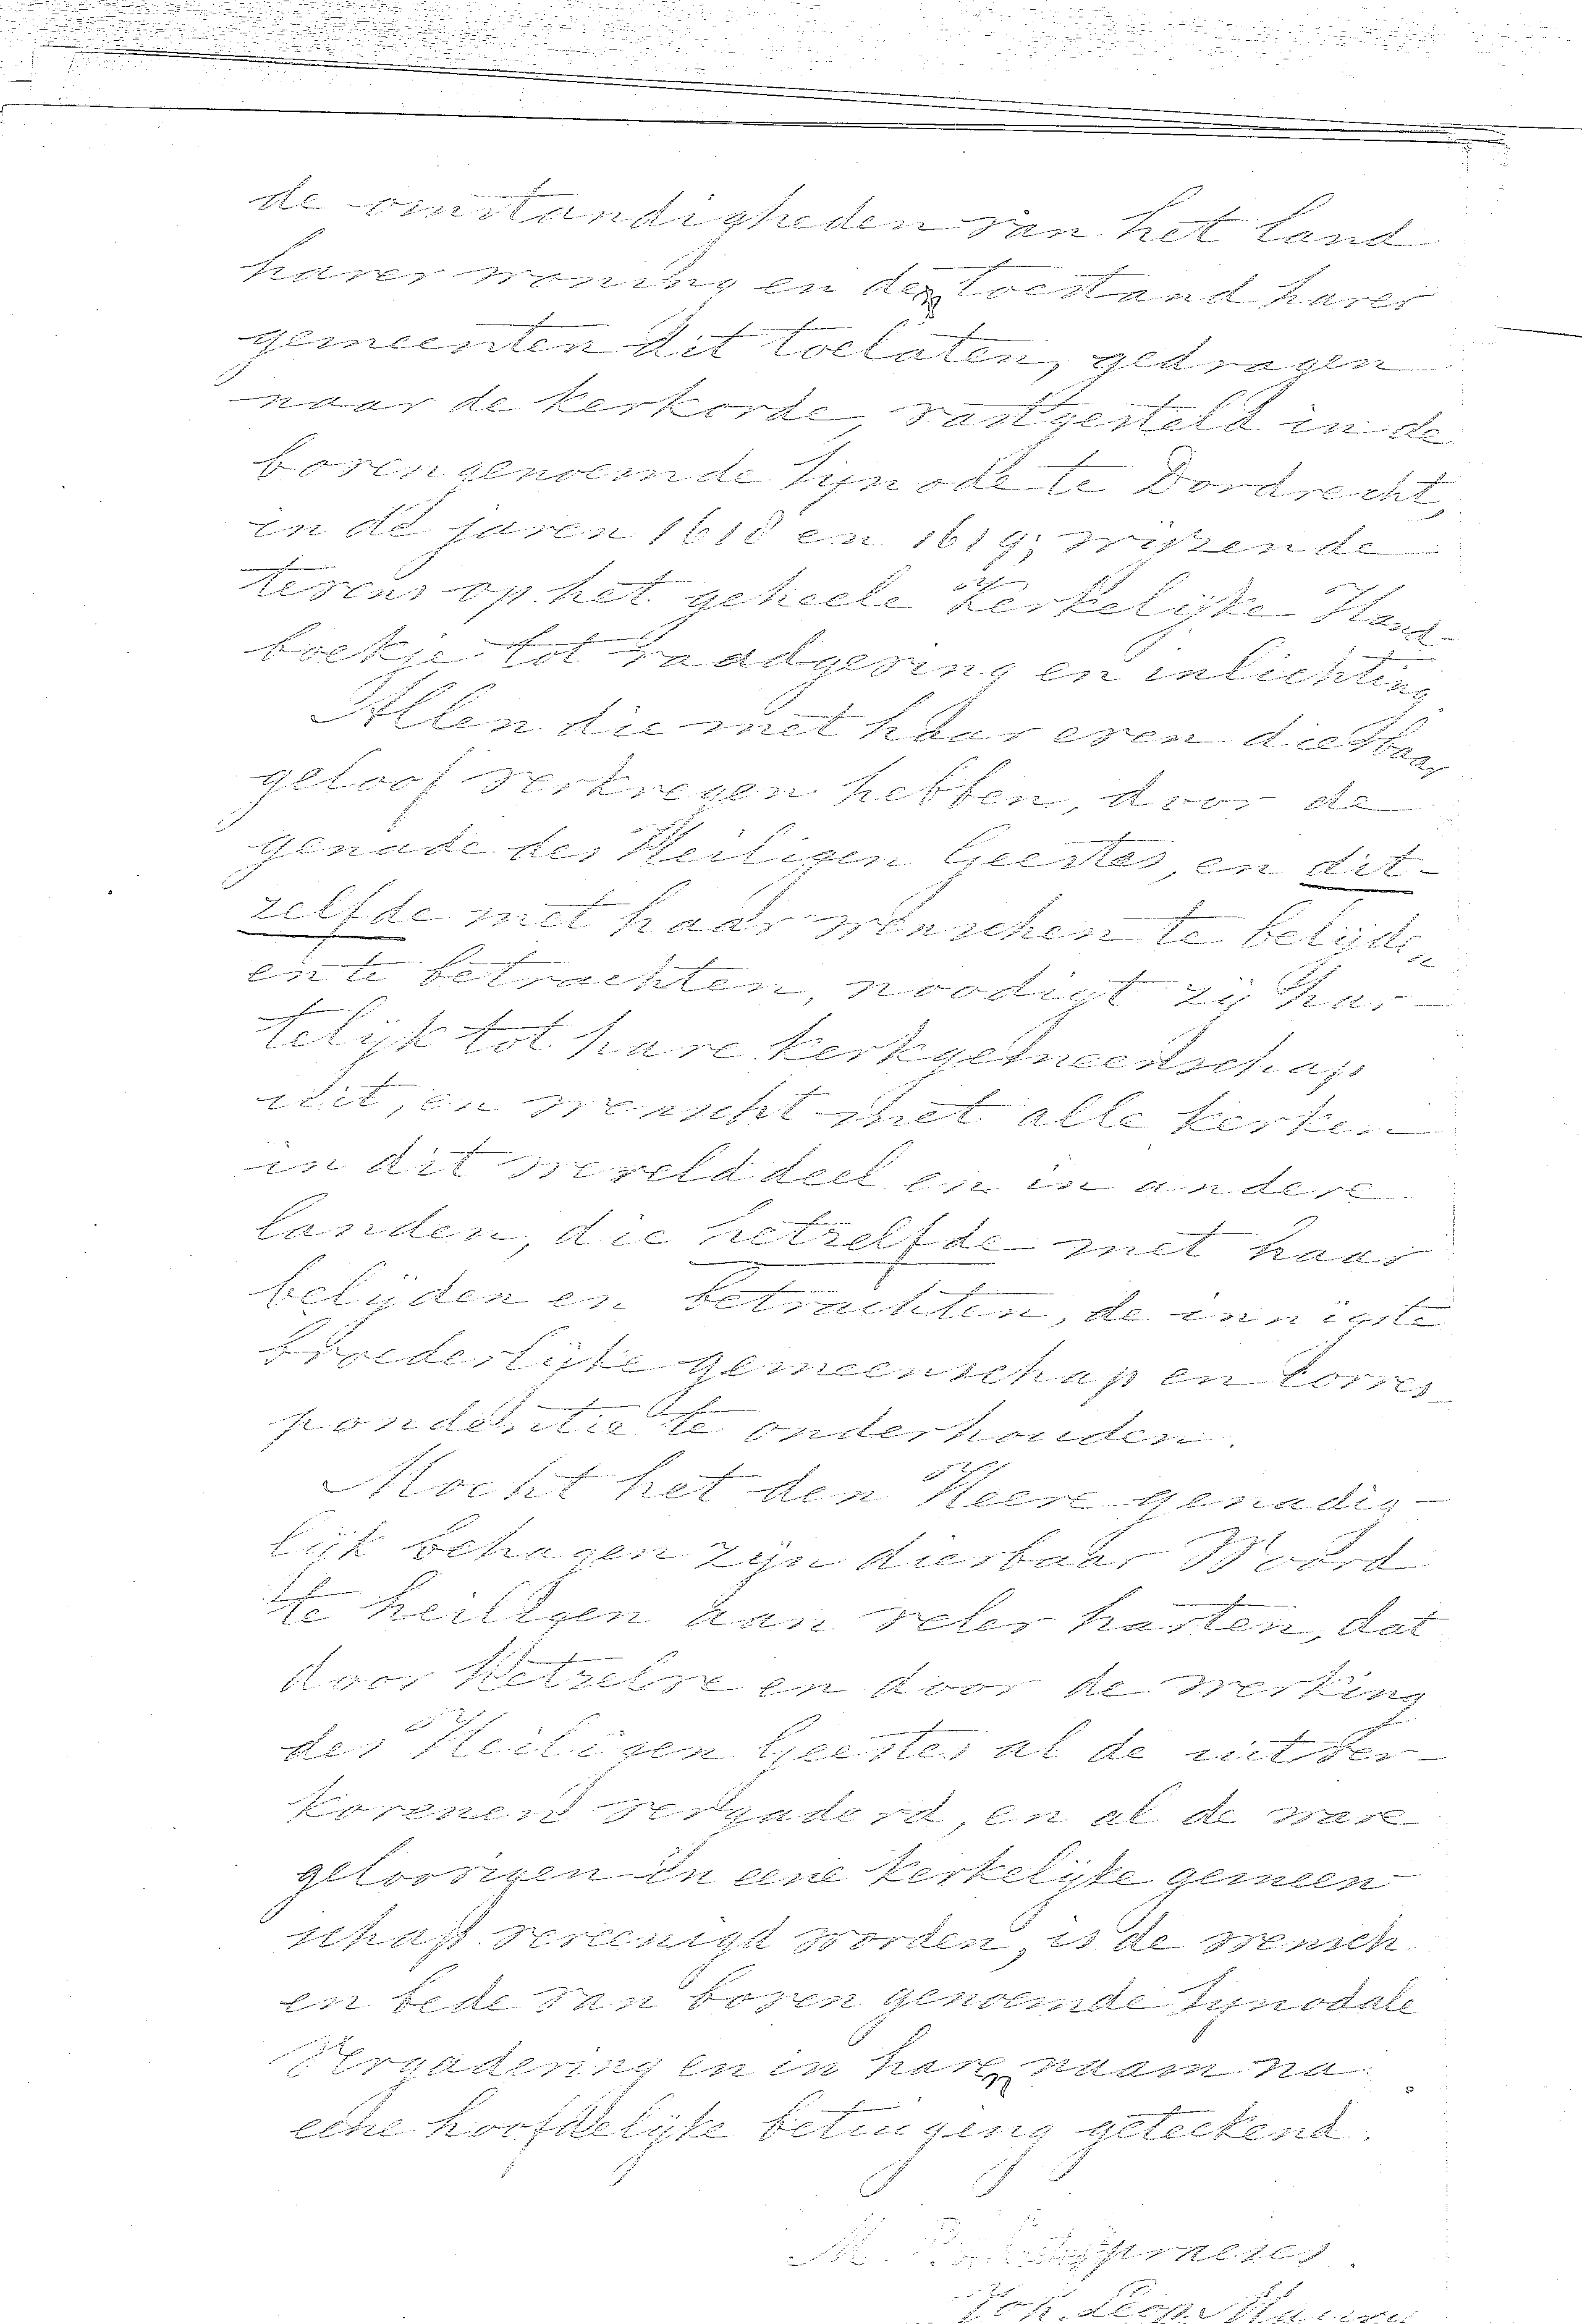 de omstandigheden van het land
harer woning en de toestand harer
gemeenten dit toelaten, gedragen
naar de kerkorde, vastgesteld in de
bovengenoemde Synode te Dordrecht,
in de jaren 1618 en 1619; wijzende
tevens op het geheele Kerkelijke Hand-
boekje tot raadgeving en inlichting.
Allen die met haar even dierbaar
geloof verkregen hebben, door de
genade des Heiligen Geestes, en dit-
zelfde met haar wenschen te belijden
en te betrachten, noodigt zij har-
telijk tot hare kerkgemeenschap
uit, en wenscht met alle kerken
in dit werelddeel en in andere
landen, die hetzelfde met haar
belijden en betrachten, de innigste
broederlijke gemeenschap en corres-
pondentie te onderhouden.
Mocht het den Heere genadig-
lijk behagen zijn dierbaar Woord
te heiligen aan veler harten, dat
door hetzelve en door de werking
des Heiligen Geestes al de uitver-
korenen vergaderd, en al de ware
geloovigen in eene kerkelijke gemeen
schap vereenigd worden, is de wensch
en bede van boven genoemde Synodale
Vergadering en in hare naam na
eene hoofdelijke betuiging geteekend.
M.
Joh.